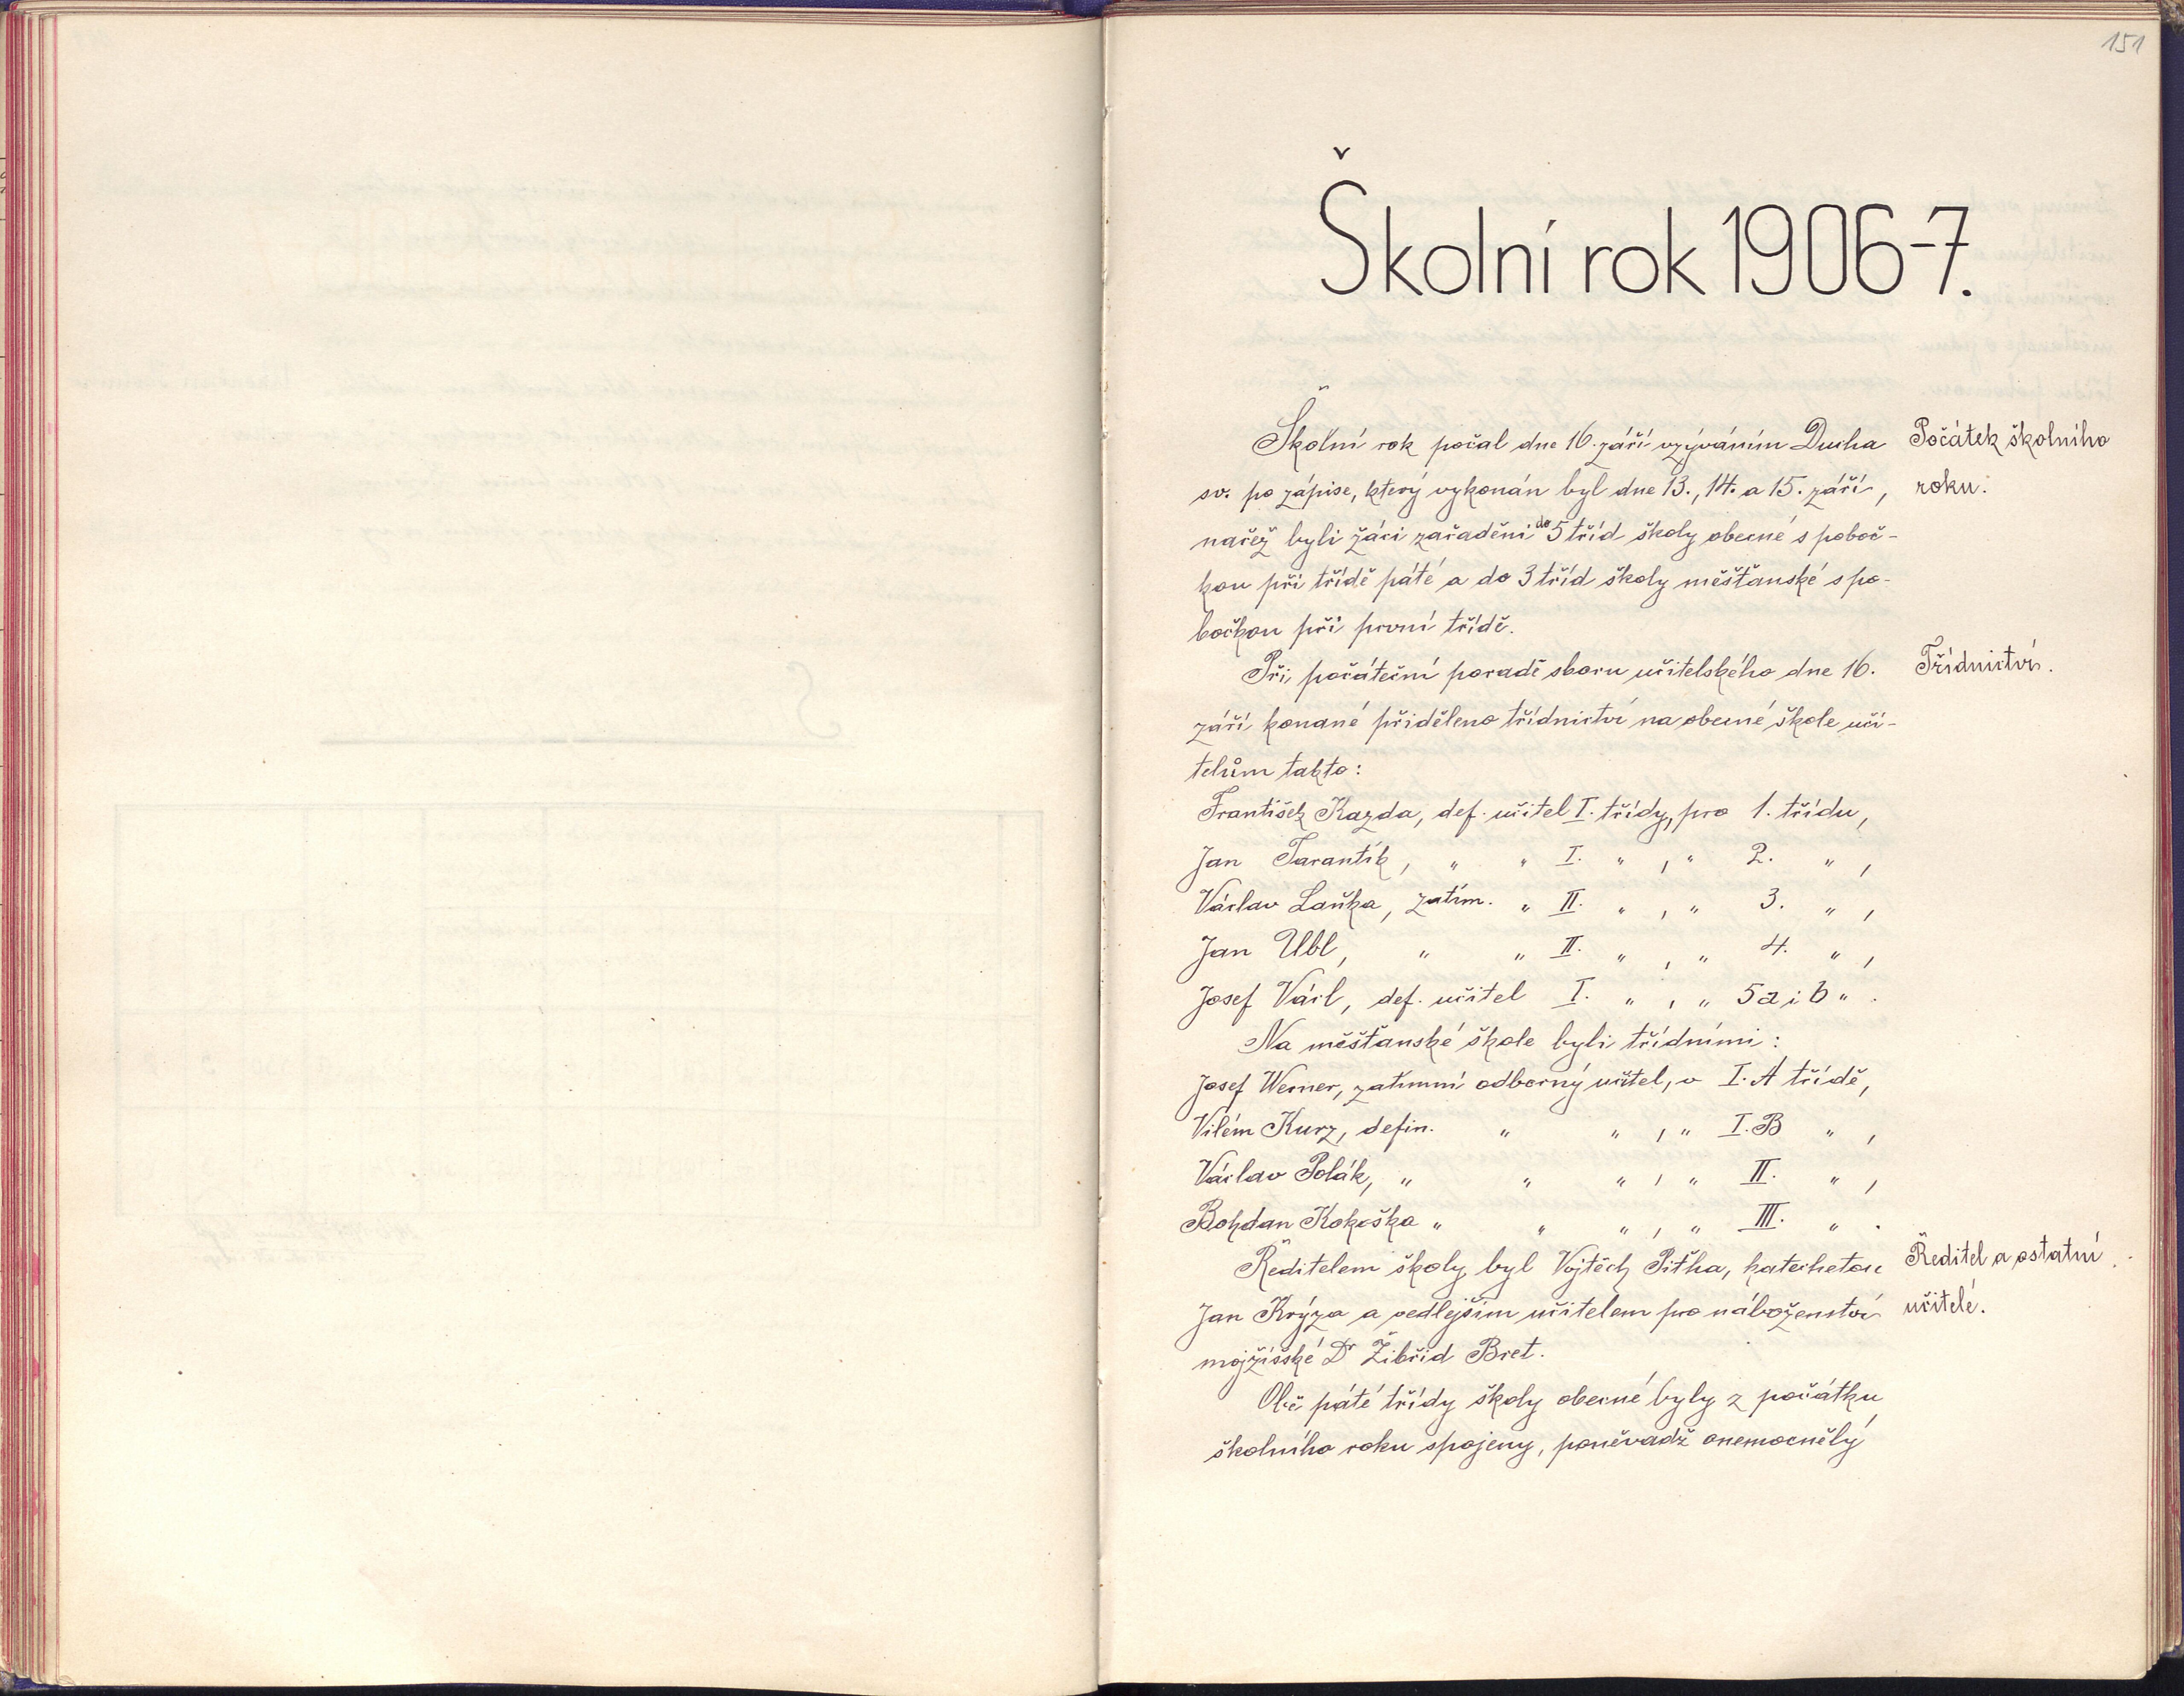 151
Školní rok 1906-7.
Školní rok počal dne 16. září vzýváním Ducha
Počátek školního
sv. po zápise, který vykonán byl dne 13., 14. a 15. září,
roku.
načež byli žáci zařaděni do 5 tříd školy obecné s poboč-
kou při třídě páté a do 3 tříd školy měšťanské s po-
bočkou při první třídě.
Při počáteční poradě sboru učitelského dne 16.
Třídnictví.
září konané přiděleno třídnictví na obecné škole uči-
telům takto:
František Kazda, def. učitel I. třídy, pro 1. třídu,
Jan Tarantík, " " I. " , " 2. " ,
Václav Laňka, zatím. " II. " , " 3. " ,
Jan Ubl, " " II. " , " 4. " ,
Josef Václ, def. učitel I. " , " 5a i b " .
Na měšťanské škole byli třídními:
Josef Werner, zatímní odborný učitel, v I. A třídě,
Vilém Kurz, defin. " " , " I. B " ,
Václav Polák, " " " , " II. " ,
Bohdan Kokoška " " " , " III. " .
Ředitelem školy byl Vojtěch Pitha, katechetou
Ředitel a ostatní
Jan Krýza a vedlejším učitelem pro náboženství
učitelé.
mojžíšské Dr Žibřid Bret.
Obě páté třídy školy obecné byly z počátku
školního roku spojeny, poněvadž onemocnělý